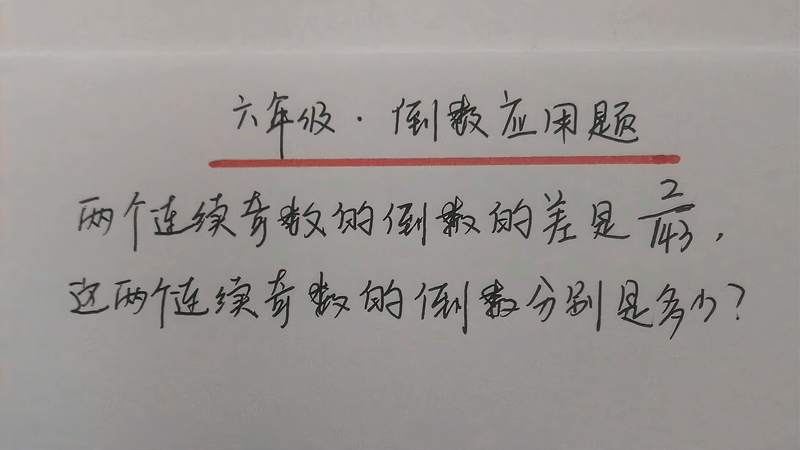 六年级·倒数应用题
两个连续奇数的倒数的差是2/143,
这两个连续奇数的倒数分别是多少?